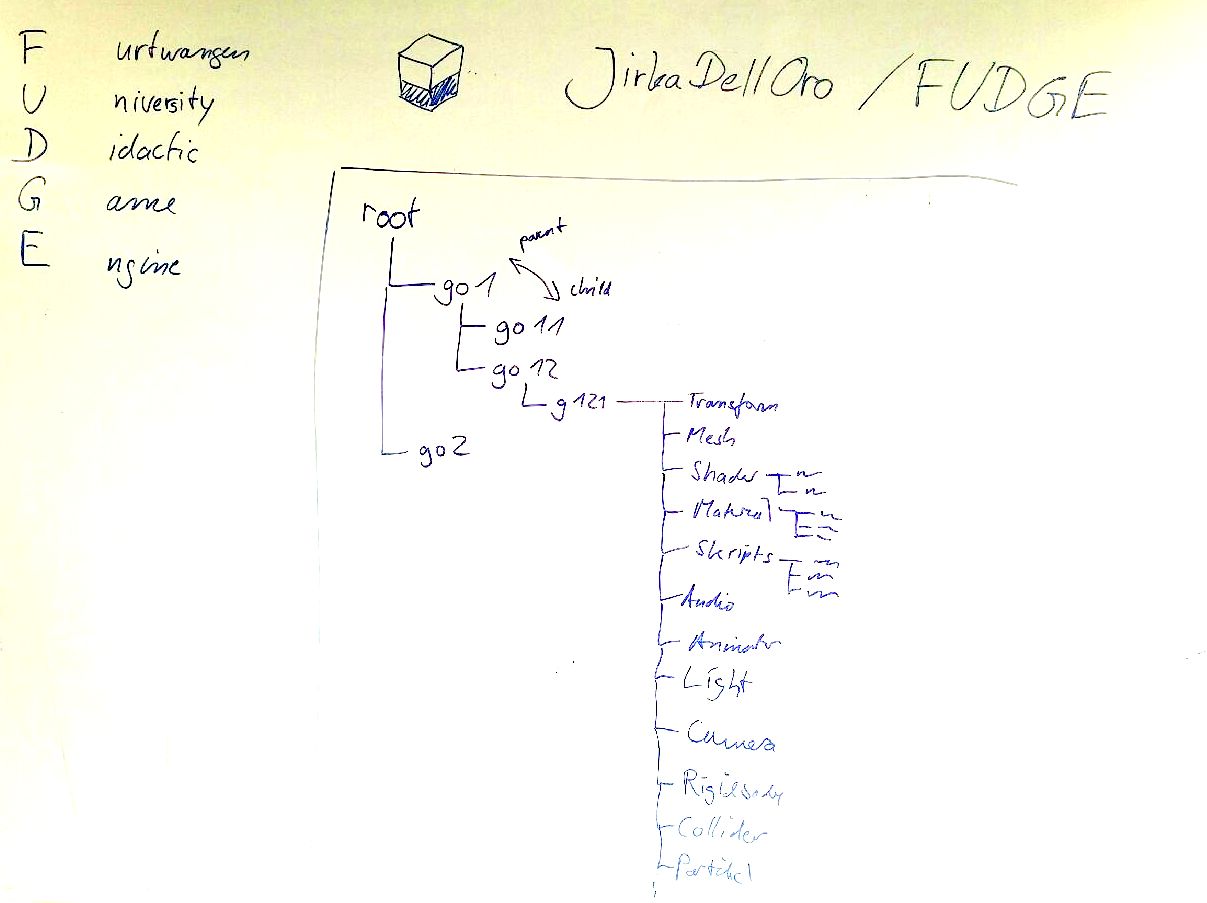 F urtwangen
U niversity
D idactic
G ame
E ngine
JirkaDellOro / FUDGE
root
parent
go 1
child
go 11
go 12
g 121
Transform
Mesh
go 2
Shader
Material
Skripts
Audio
Animator
Light
Camera
Rigidbody
Collider
Partikel